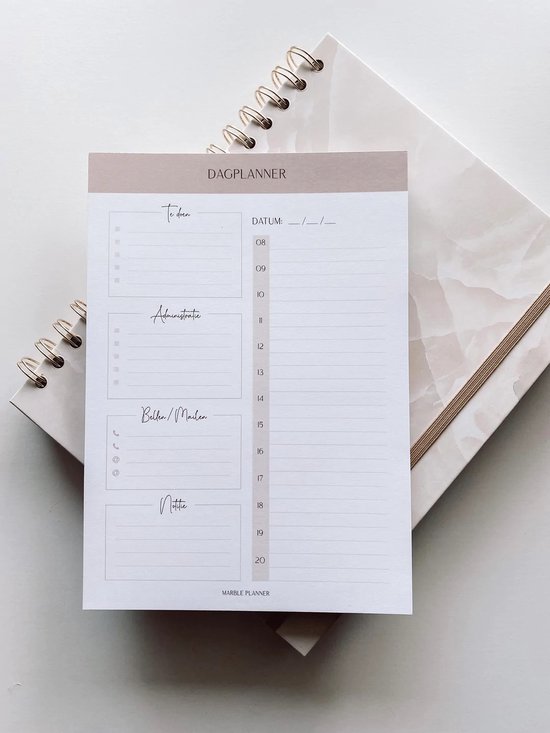 DAGPLANNER
Te doen
Administratie
Bellen/Mailen
@
@
Notitie
DATUM: __/__/__
08
09
10
11
12
13
14
15
16
17
18
19
20
MARBLE PLANNER